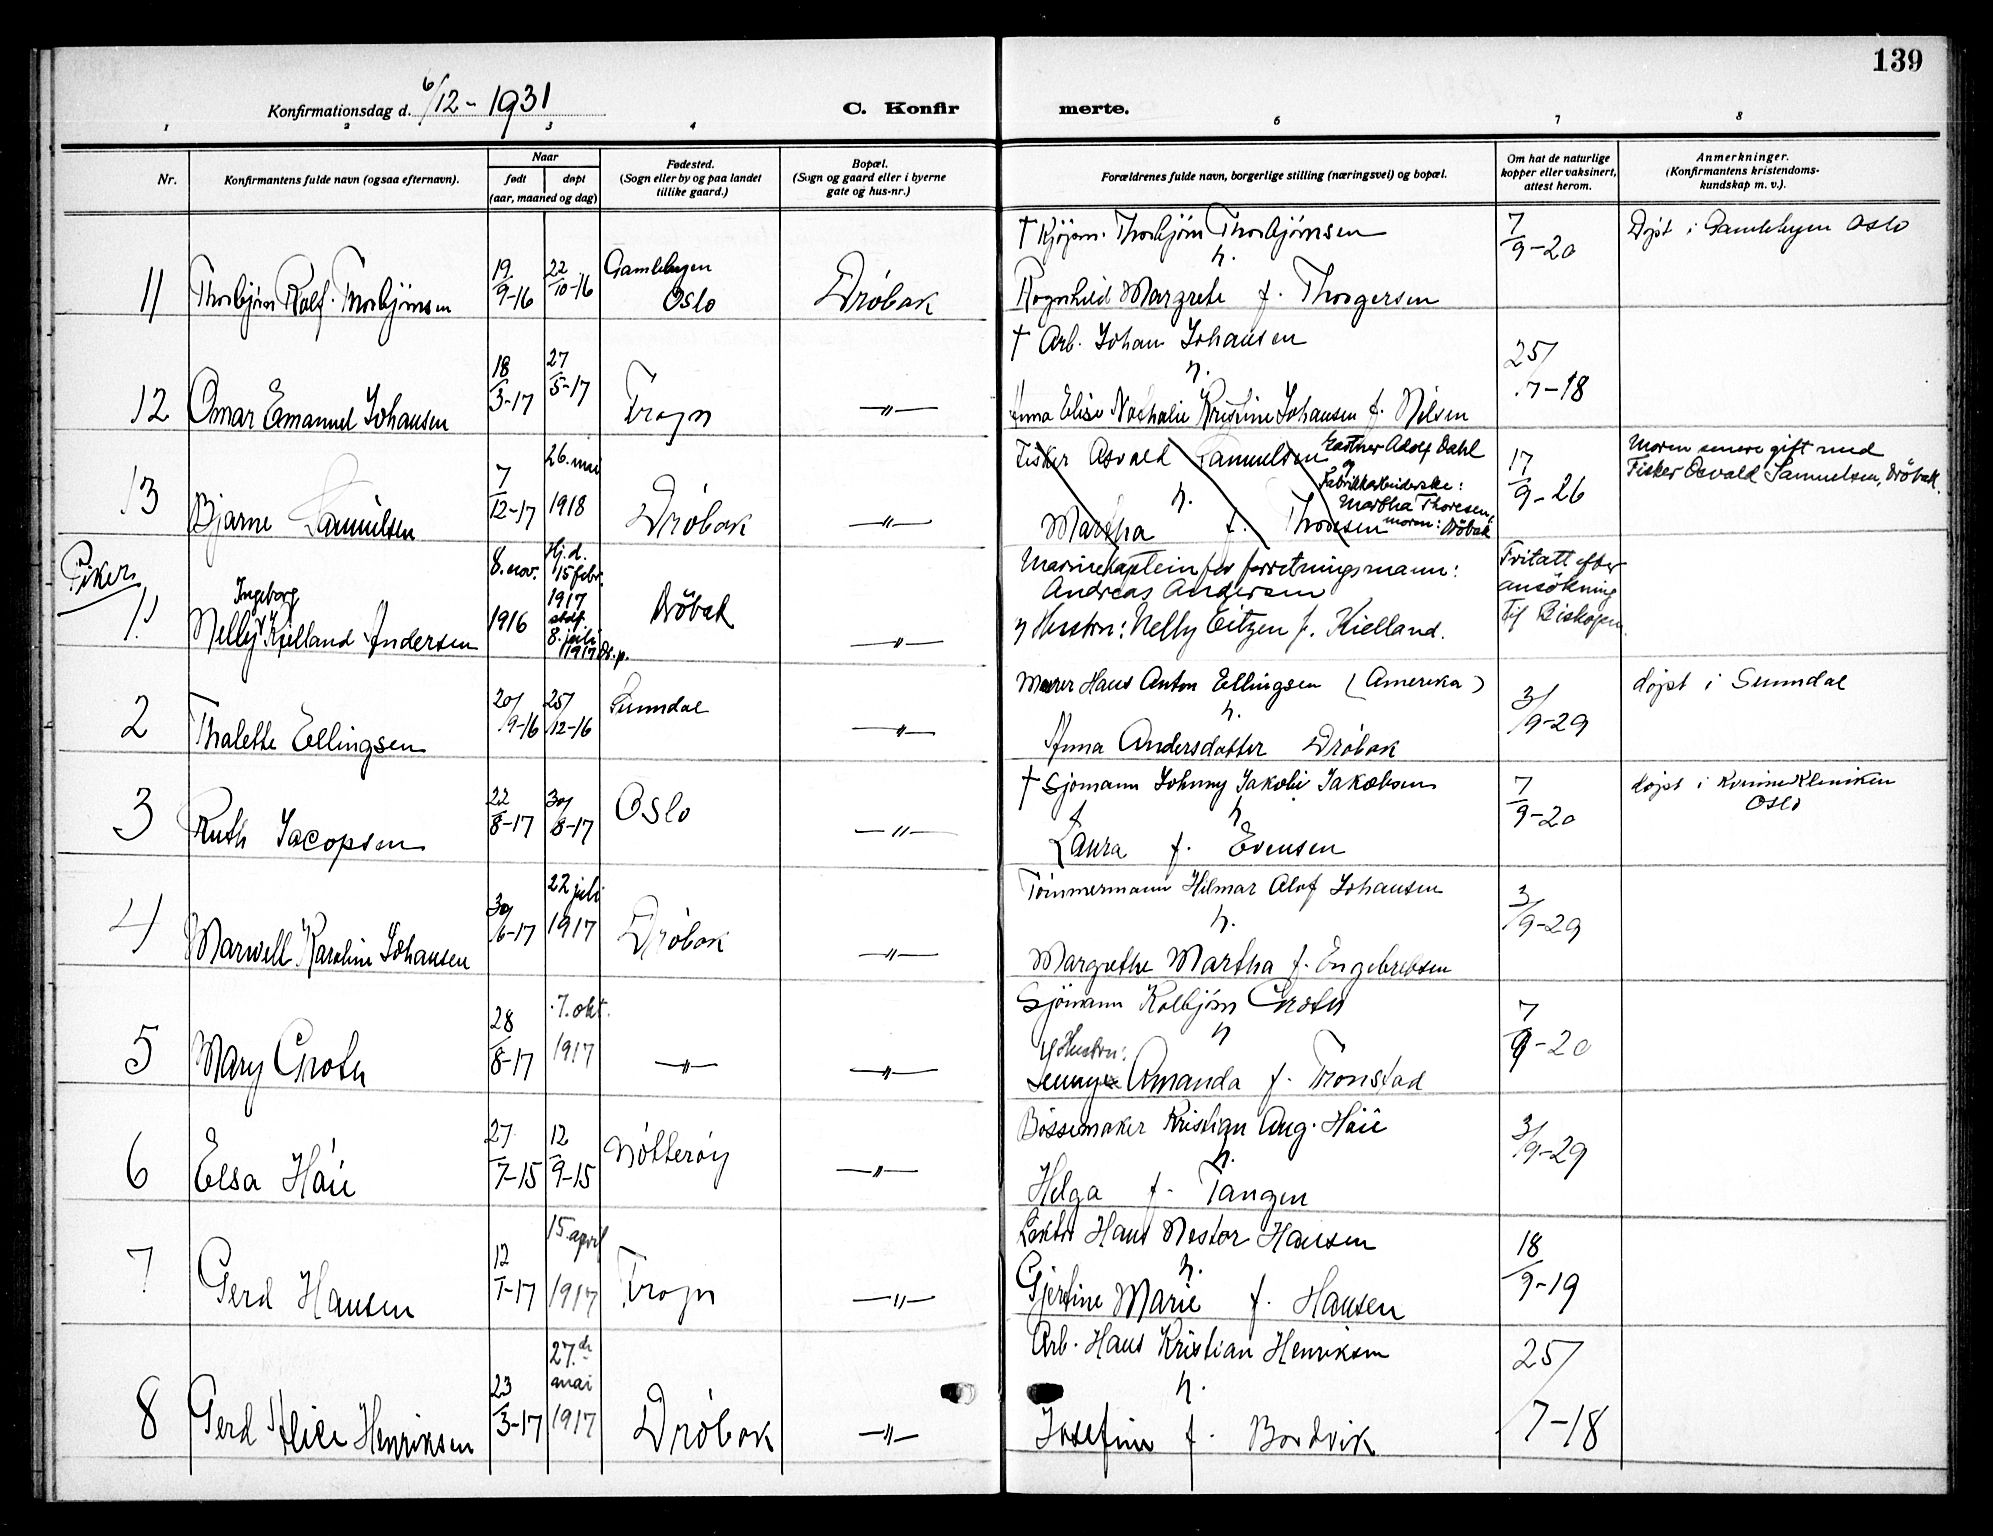 139
Konfirmationsdag d. 6/12 - 1931
C. Konfir merte.
1 2 3 4 6 7 8
Nr.
Konfirmantens fulde navn (ogsaa efternavn).
Naar
født døpt
(aar, maaned og dag)
Fødested.
(Sogn eller by og paa landet
tillike gaard.)
Bopæl.
(Sogn og gaard eller i byerne
gate og hus-nr.)
Forældrenes fulde navn, borgerlige stilling (næringsvei) og bopæl.
Om hat de naturlige
kopper eller vaksinert,
attest herom.
Anmerkninger.
(Konfirmantens kristendoms-
kundskap m. v.).
11 Thorbjørn Rolf Thorbjørnsen 19/9-16 22/10-16 Gamlebyen Oslo Drøbak
† Thorbjørn Thorbjørnsen
h.
Ragnhild Margrete f. Thorgersen
7/9-20
Døpt i Gamlebyen Oslo
12 Omar Emanuel Johansen 18/3-17 27/5-17 Frogn —"—
† Arb. Johan Johansen
h.
Anna Elise Nathalie Kristine Johansen f. Nilsen
25/7-18
13 Bjarne Samuelsen 7/12-17 26. mai 1918 Drøbak —"—
Fisker Osvald Samuelsen
h.
Martha f. Thoresen
Gartner Adolf Dahl
og
Fabrikkarbeiderske:
Martha Thoresen,
morm: Drøbak
17/9-26
Moren senere gift med
Fisker Osvald Samuelsen, Drøbak.
Piker
1. Nelly Ingeborg Kielland Andersen 8. nov. 1916 Hj.d. 15 febr. 1917 stdf. 8. juli 1917 Drøbak —"—
Marinekaptein forretningsmann:
Andreas Andersen
og Hustru: Nelly Eitzen f. Kielland.
Fritatt efter
ansökning
til Biskopen.
2 Thalette Ellingsen 20/9-16 25/12-16 Sunndal —"—
Murer Hans Anton Ellingsen (Amerika)
h.
Anna Andersdatter Drøbak
3/9-29
døpt i Sunndal
3 Ruth Jacopsen 22/8-17 30/8-17 Oslo —"—
† Sjømann Johnny Jakobi Jakobsen
h
Laura f. Evensen
7/9-20
døpt i Kvinneklinikken
Oslo
4 Marwell Karoline Johansen 30/6-17 22 juli 1917 Drøbak —"—
Tømmermann Hilmar Olof Johansen
h.
Margrethe Martha f. Engebretsen
3/9-29
5 Mary Groth 28/8-17 7. okt. 1917 —"— —"—
Sjömann Kolbjørn Groth
h
Hustru:
Jenny Amanda f. Tronstad
7/9-20
6 Elsa Håie 27/7-15 12/9-15 Nøtterøy —"—
Bøssemaker Kristian Aug. Håie
h.
Helga f. Tangen
3/9-29
7 Gerd Hansen 12/1-17 15. april 1917 Frogn —"—
Hans Nestor Hansen
h.
Gjertine Marie f. Hansen
18/9-19
8 Gerd Alice Henriksen 23/3-17 27.de mai 1917 Drøbak —"—
Arb. Hans Kristian Henriksen
h.
Josefine f. Bordvik
25/7-18